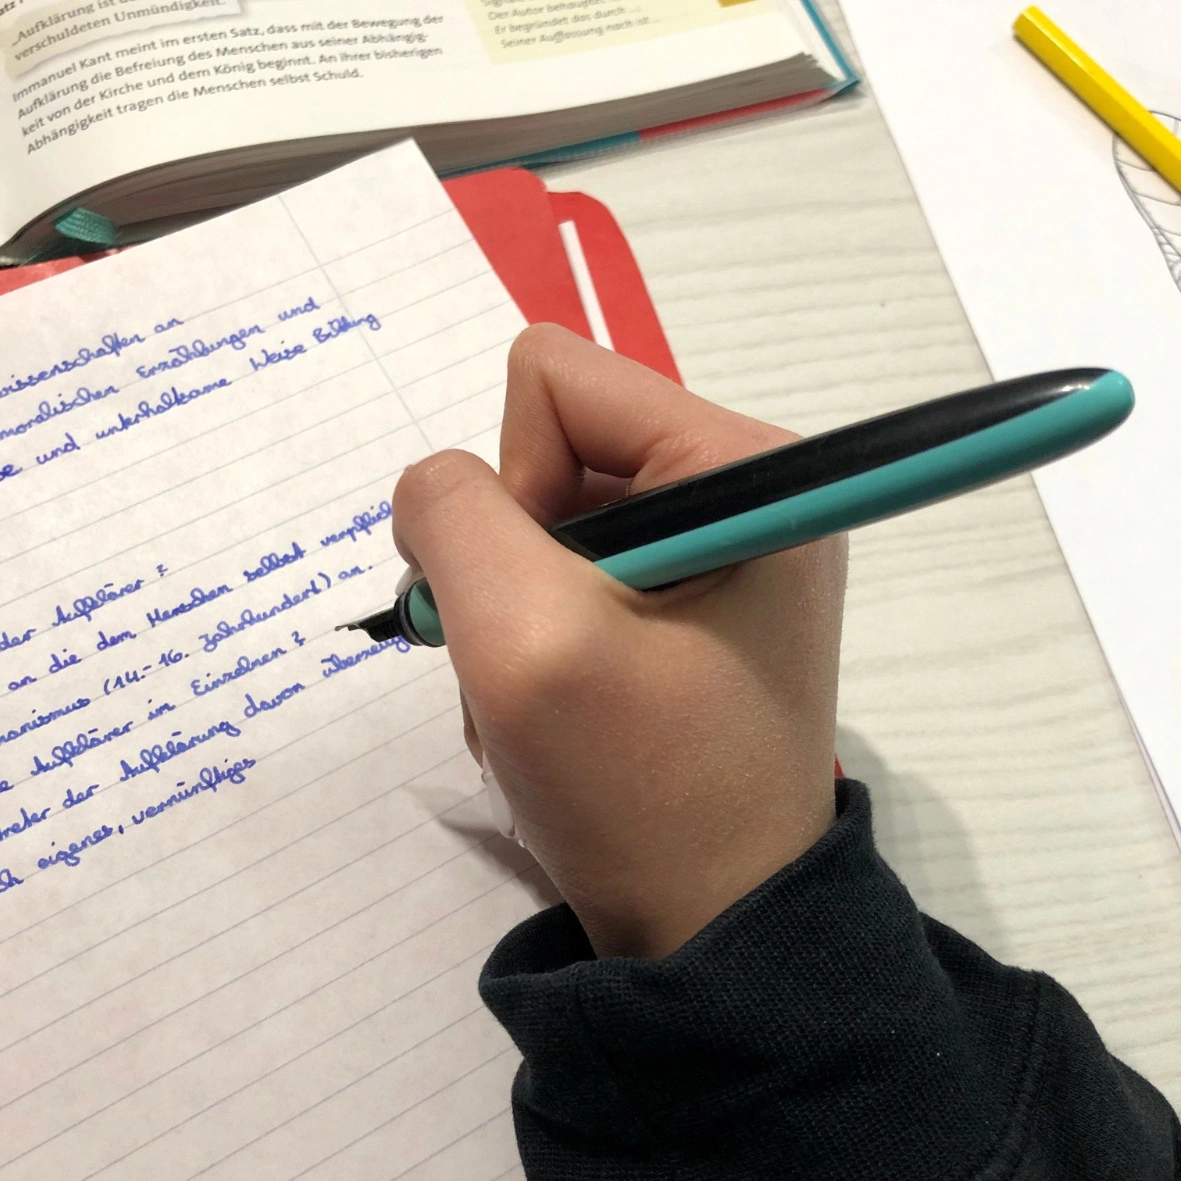 „Aufklärung ist
verschuldeten Unmündigkeit.“
Immanuel Kant meint im ersten Satz, dass mit der Bewegung der
Aufklärung die Befreiung des Menschen aus seiner Abhängig-
keit von der Kirche und dem König beginnt. An ihrer bisherigen
Abhängigkeit tragen die Menschen selbst Schuld.
Der Autor behauptet ...
Er begründet das durch ...
Seiner Auffassung nach ist ...
wissenschaften an
moralischen Erzählungen und
und unterhaltsame Weise Bildung
der Aufklärer?
an die dem Menschen selbst
(14.-16. Jahrhundert) an.
Aufklärer im Einzelnen?
der Aufklärung davon
eigenes, vernünftiges